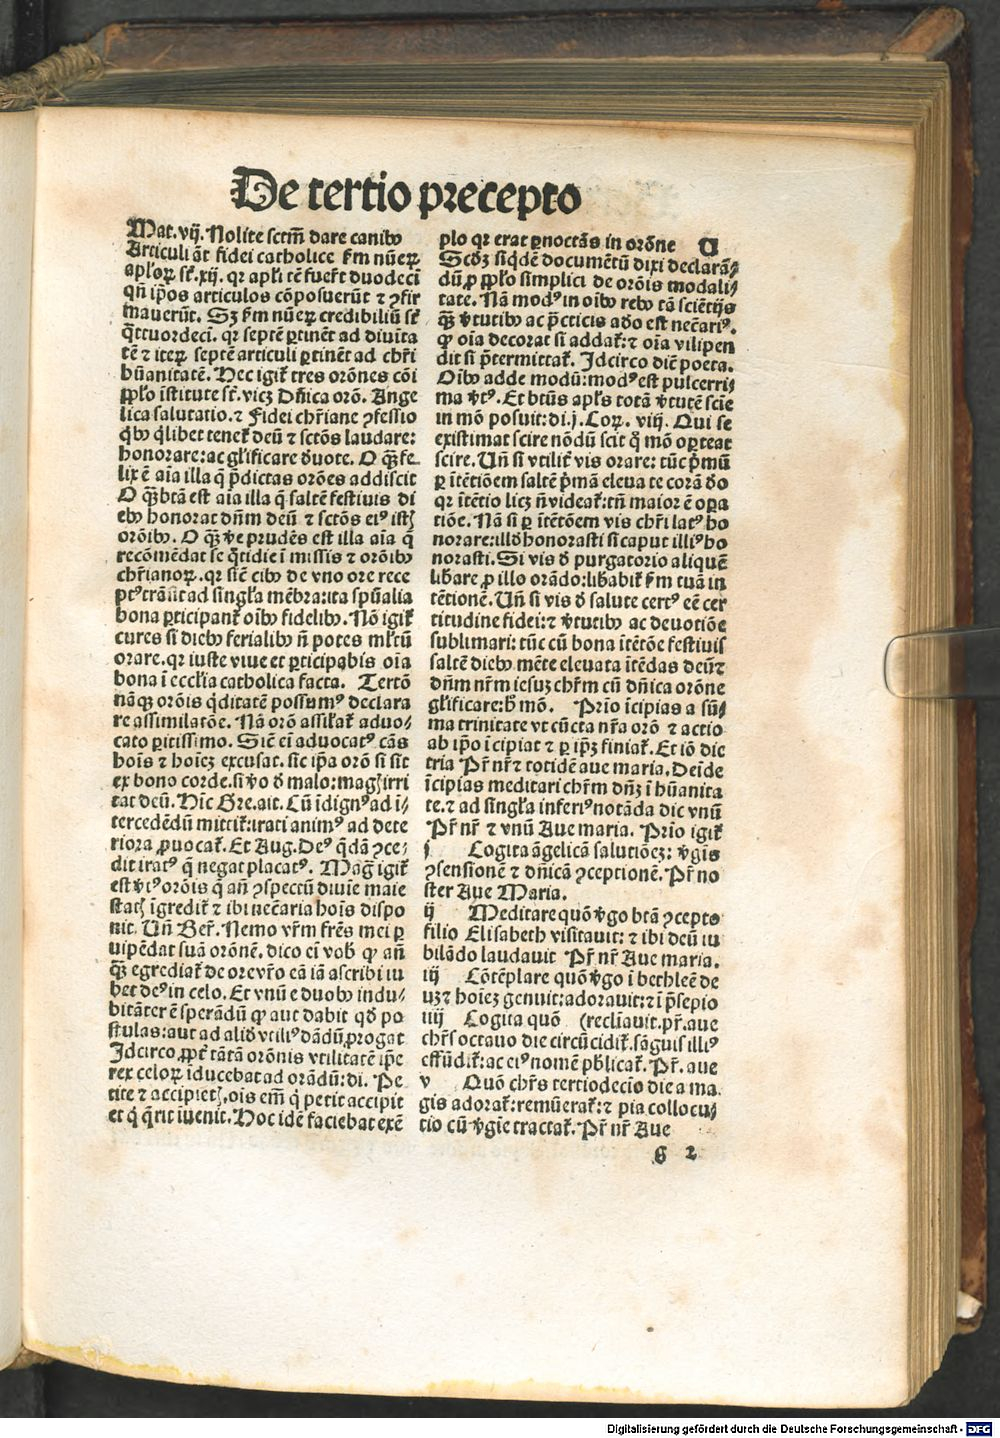 De tertio precepto
Mat. vij. Nolite sctm̄ dare canibꝰ
Articuli āt fidei catholice s̄m nūeꝝ
apl'oꝝ st̄.xij. qꝛ apl'i tē fuer̄t duodeci
qn̄ ip̄os articulos cōposuerūt ⁊ ꝯfir
mauerūt. Sꝫ s̄m nūeꝝ credibiliū st̄
q̄ttuordeci. qꝛ septē ꝑtinēt ad diuīta
tē ⁊ iteꝝ septē articuli ꝑtinēt ad chr̄i
hūanitatē. Hec igit̄ tres orōnes cōi
pp̄lo īstitute st̄. vicꝫ Dn̄ica orō. Ange
lica salutatio.⁊ Fidei chr̄iane ꝯfessio
qͥbꝰ qͥlibet tenet̄ deū ⁊ sctōs laudare:
honorare: ac gl'ificare deuote. O qͣꝫ fe
lix ē aīa illa q̄ p̄dictas orōes addiscit
O qͣꝫ btā est aīa illa q̄ saltē festiuis di
ebꝰ honorat dn̄m deū ⁊ sctōs eiꝰ istꝭ
orōibꝰ. O qͣꝫ ve prudēs est illa aīa q̄
recōmēdat se qͦtidie ī missis ⁊ orōibꝰ
chr̄ianoꝝ. qꝛ sic̄ cibꝰ de vno ore rece
ptꝰ trāsit ad singl'a mēbra: ita sp̄ualia
bona ꝑticipant̄ oībꝰ fidelibꝰ. Nō igit̄
cures si diebꝰ ferialibꝰ n̄ potes ml'tū
orare. qꝛ iuste viue et ꝑticipabis oīa
bona ī eccl'ia catholica facta. Tertō
nāqꝫ orōis qͥditatē possumꝰ declara
re assimilatōe. Nā orō assil'at̄ aduo⸗
cato ꝑitissimo. Sic̄ em̄ aduocatꝰ cās
hoīs ⁊ hoīeꝫ excusat. sic ip̄a orō si sit
ex bono corde. si v̄o de malo: magꝭ irri
tat deū. Hīc Gre. ait. Cū īdignꝰ ad ī⸗
tercedēdū mittit̄: irati animꝰ ad dete
riora ꝓuocat̄. Et Aug. Deꝰ q̄dā ꝯce⸗
dit iratꝰ q̄ negat placatꝰ. Magͣ igit̄
est v̄tꝰ orōis q̄ an̄ ꝯspectū diuīe maie
statꝭ īgredit̄ ⁊ ibi necc̄aria hoīs dispo
nit. Vn̄ Ber̄. Nemo vr̄m fr̄es mei ꝑ
uipēdat suā orōnē. dico em̄ vob̄ ꝙ an̄
qͣꝫ egrediat̄ de ore vr̄o eā iā ascribi iu
bet deꝰ in celo. Et vnū e duobꝰ indu⸗
bitāter ē sperādū ꝙ aut dabit qd̄ po
stulas: aut ad aliud vtiliꝰ dādū ꝓrogat
Idcirco ꝓpt̄ tātā orōnis vtilitatē ip̄e
rex celoꝝ īducebat ad orādū: di. Pe
tite ⁊ accipietꝭ. oīs em̄ qͥ petit accipit
et qͥ q̄rit iuenit. Hoc idē faciebat exē
plo qꝛ erat ꝑnoctās in orōne
Scd̄ꝫ siqͥdē documētū dixi declarā⸗
dū ꝓ pp̄lo simplici de orōis modali⸗
tate. Nā modꝰ in oībꝰ rebꝰ tā sciētijs
qͣꝫ v̄tutibꝰ ac p̄cticis adeo est necc̄ariꝰ.
ꝙ oīa decorat si addat̄: ⁊ oīa vilipen
dit si p̄termittat̄. Idcirco dic̄ poeta.
Oībꝰ adde modū: modꝰ est pulcerri⸗
ma v̄tꝰ. Et btūs apl's totā v̄tutē scīe
in mō posuit: di. j. Coꝝ. viij. Qui se
existimat scire nōdū scit qͣ mō oꝑteat
scire. Vn̄ si vtilit̄ vis orare: tūc p̄mū
ꝑ ītētiōem saltē p̄mā eleua te corā deo
qꝛ ītētio licꝫ n̄ videat̄: tn̄ maior ē oꝑa
tiōe. Nā si ꝑ ītētōem vis chr̄i latꝰ ho
norare: illud honorasti si caput illiꝰ ho
norasti. Si vis de purgatorio aliquē
lib̄are ꝓ illo orādo: lib̄abit̄ s̄m tuā in
tētionē. Vn̄ si vis de salute certꝰ eē cer
titudine fidei: ⁊ v̄tutibꝰ ac deuotiōe
sublimari: tūc cū bona ītētōe festiuis
saltē diebꝰ mēte eleuata ītēdas deū ⁊
dn̄m nr̄m iesuꝫ chr̄m cū dn̄ica orōne
gl'ificare: h̄ mō. Prīo īcipias a sūm⸗
ma trinitate vt cūcta nr̄a orō ⁊ actio
ab ip̄o īcipiat ⁊ ꝑ ip̄ꝫ finiat̄. Et iō dic
tria Pr̄ nr̄ ⁊ totidē aue maria. Deīde
īcipias meditari chr̄m dn̄ꝫ ī hūanita
te. ⁊ ad singl'a inferiꝰ notāda dic vnū
Pr̄ nr̄ ⁊ vnū Aue maria. Prīo igit̄
j Cogita āgelicā salutiōeꝫ: v̄gīs
ꝯsensionē ⁊ dn̄icā ꝯceptionē. Pr̄ no
ster Aue Maria.
ij Meditare quō v̄go btā ꝯcepto
filio Elisabeth visitauit: ⁊ ibi deū iu
bilādo laudauit Pr̄ nr̄ Aue maria.
iij Cōtēplare quō v̄go ī bethleē de
uꝫ ⁊ hoīeꝫ genuit: adorauit: ⁊ ī p̄sepio
iiij Cogita quō (reclīauit. pr̄. aue
chr̄s octauo die circūcidit̄. sāguis illiꝰ
effūdit̄: ac eiꝰ nomē pb̄licat̄. Pr̄. aue
v Quō chr̄s tertiodecīo die a ma⸗
gis adorat̄: remūerat̄: ⁊ pia collocu⸗
tio cū v̄gīe tractat̄. Pr̄ nr̄ Aue
Digitalisierung gefördert durch die Deutsche Forschungsgemeinschaft - DFG